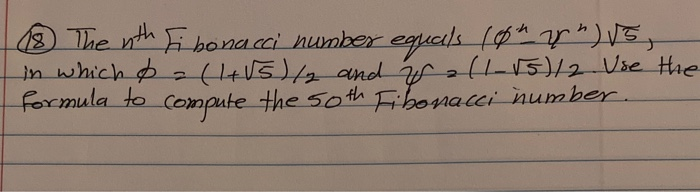 (18) The nth Fibonacci number equals (φ^n - ψ^n)√5,
in which φ = (1+√5)/2 and ψ = (1-√5)/2. Use the
formula to compute the 50th Fibonacci number.